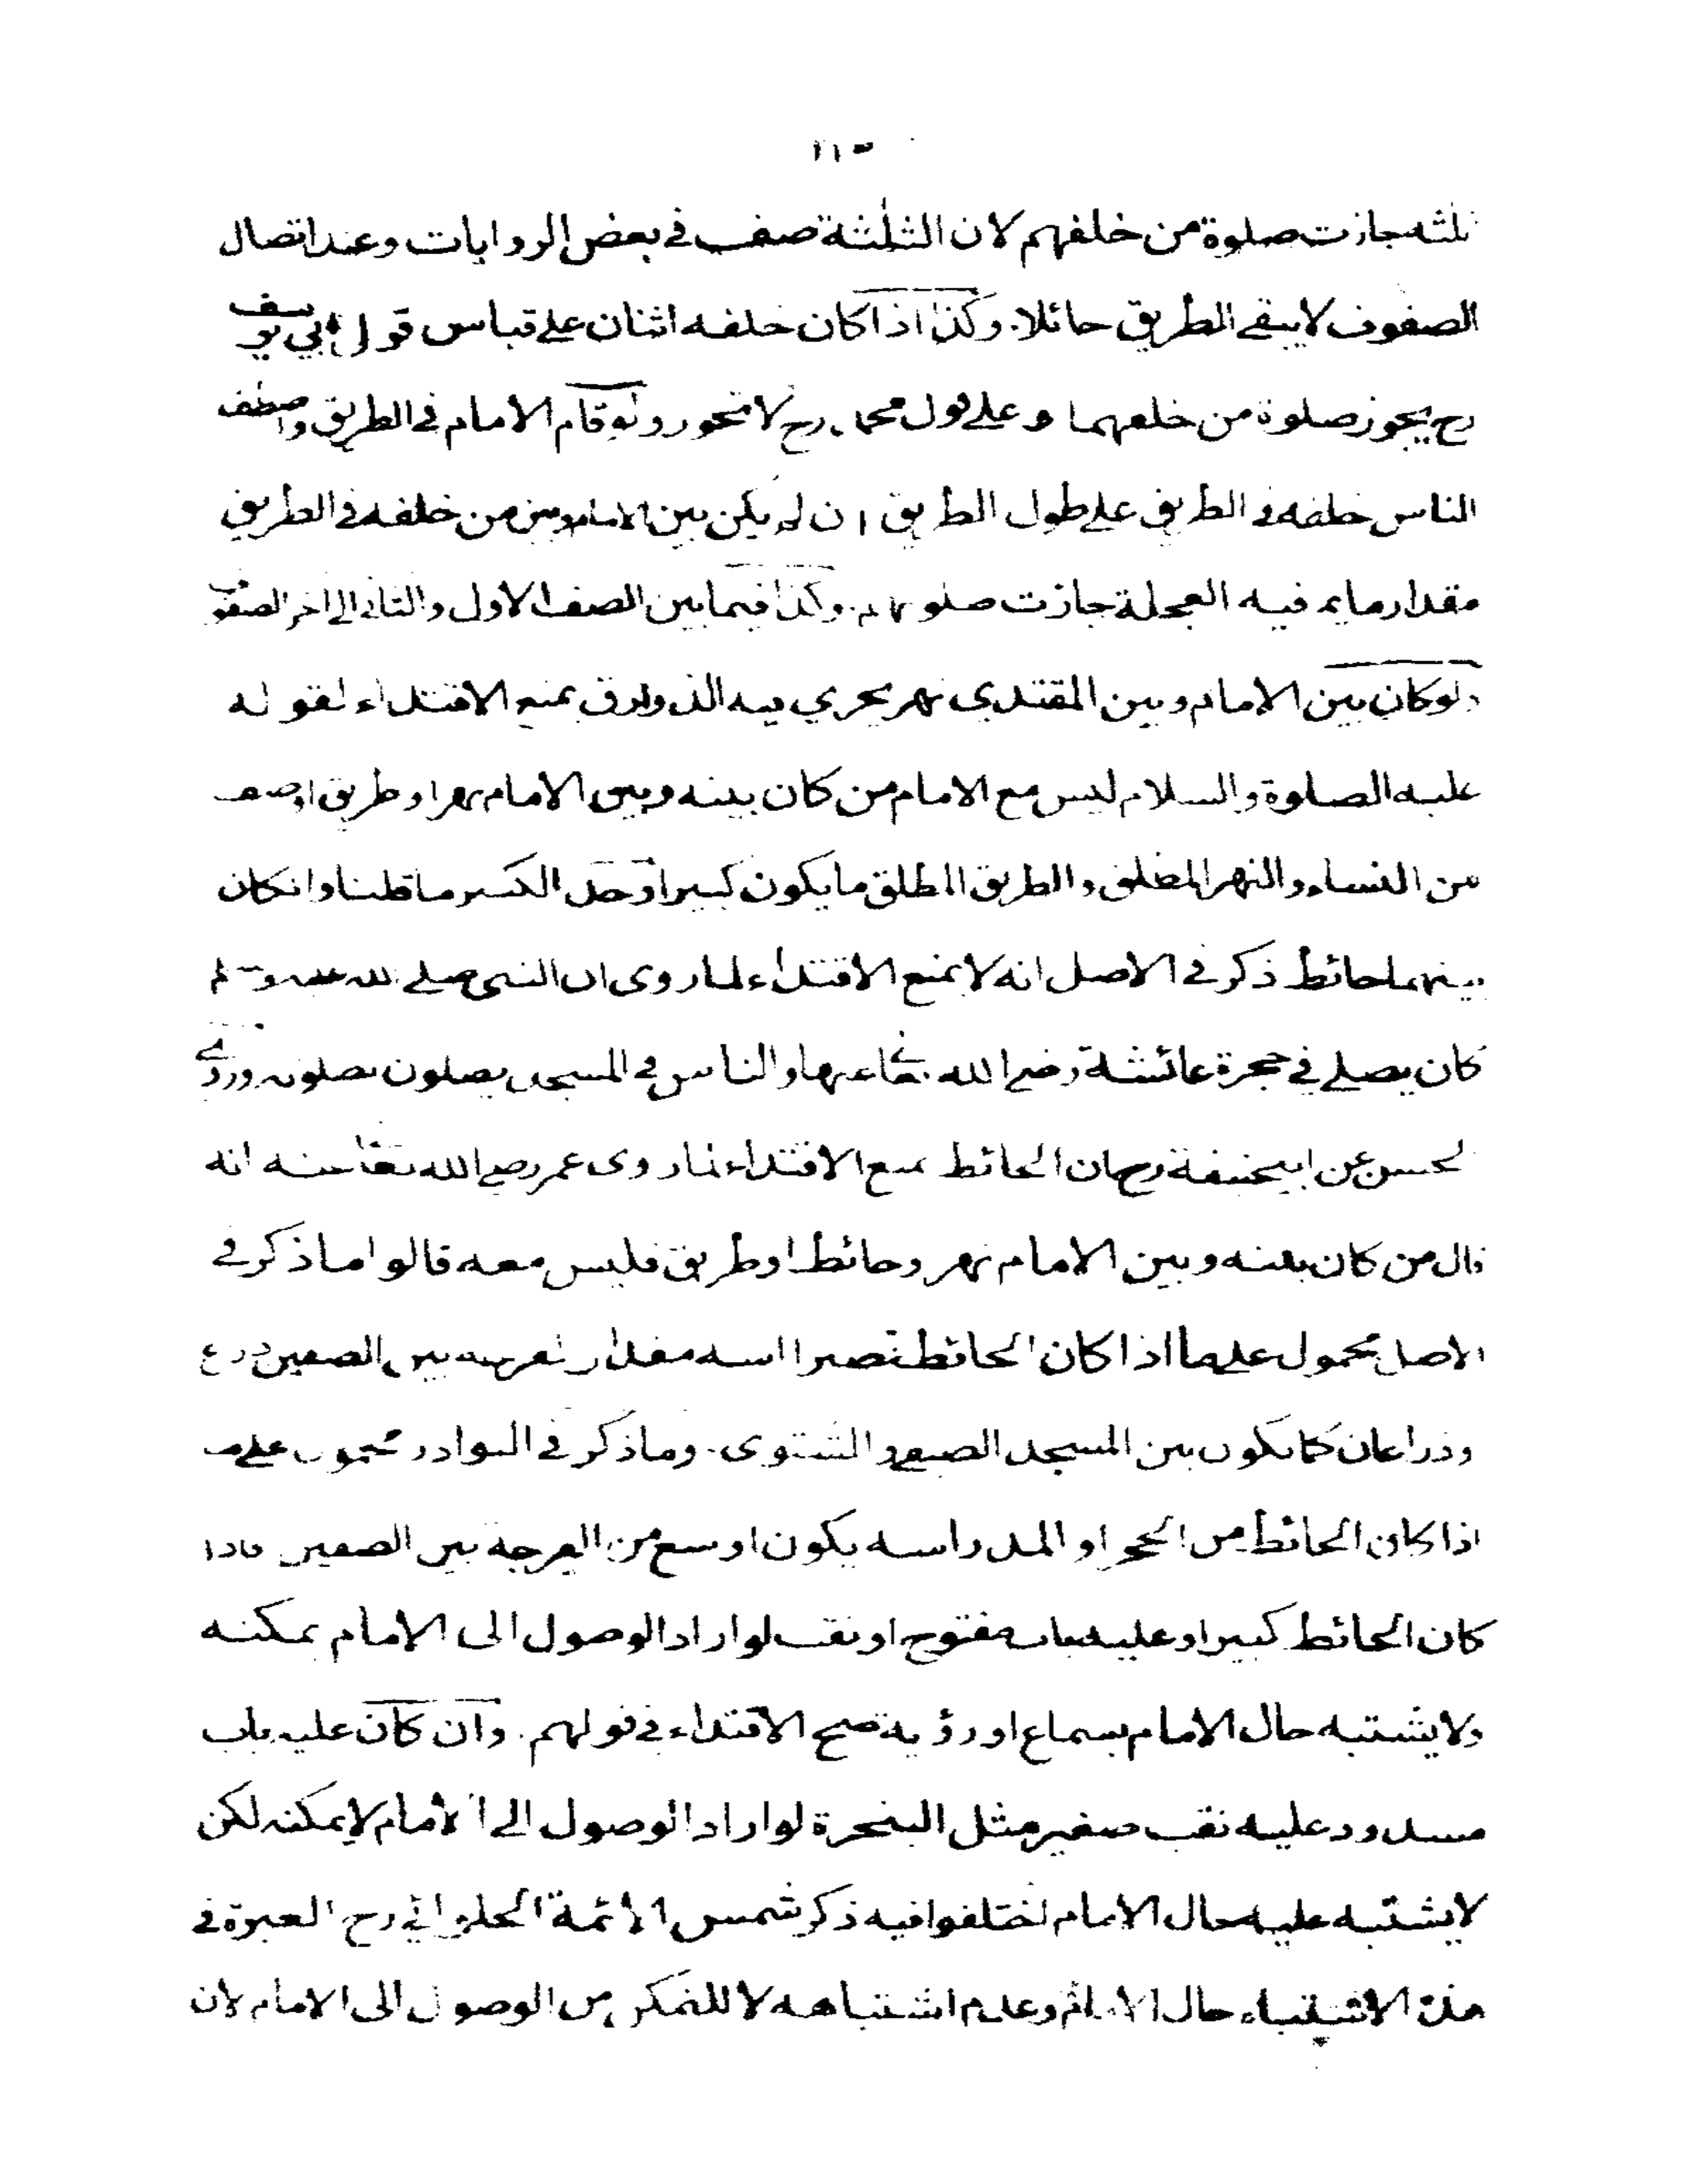 ثلثه جازت صلوة من خلفهم لان الثلثة صف فى بعض الروايات وعند اتصال
الصفوف لايبقى الطريق حائلا. وكذا اذا كان خلفه اثنان على قياس قول ابي يوسف
رح يجوز صلوة من خلفهما وعلى قول محمد رح لا تجوز ولو قام الامام فى الطريق واصطف
الناس خلفه فى الطريق على طول الطريق ان لم يكن بين الامام وبين من خلفه فى الطريق
مقدار ما يمر فيه العجلة جازت صلوتهم. وكذا فيما بين الصف الاول والثانى الى اخر الصفوف
ولو كان بين الامام وبين المقتدي نهر يجري فيه الزورق يمنع الاقتداء لقوله
عليه الصلوة والسلام ليس مع الامام من كان بينه وبين الامام نهر او طريق او صف
من النساء والنهر المطلق والطريق المطلق ما يكون كبيرا وحد الكبير ما قلنا وان كان
بينهما حائط ذكر فى الاصل انه لا يمنع الاقتداء لما روى ان النبى صلى الله عليه وسلم
كان يصلى فى حجرة عائشة رضى الله تعا عنها والناس فى المسجد يصلون بصلوته وروى
الحسن عن ابيحنيفة رح ان الحائط يمنع الاقتداء لما روى عمر رضى الله تعا عنه انه
قال من كان بينه وبين الامام نهر وحائط او طريق فليس معه قالوا ما ذكر فى
الاصل محمول على ما اذا كان الحائط قصيرا اسه مقدار الفرجة بين الصفين ذراع
وذراعان كما يكون بين المسجد الصيفى والشتوى. وما ذكر فى النوادر محمول على ما
اذا كان الحائط من الحجر او المدر اسه يكون اوسع من الفرجة بين الصفين فاذا
كان الحائط كبيرا وعليه باب مفتوح او نقب لو اراد الوصول الى الامام يمكنه
ولا يشتبه حال الامام بسماع او رؤية صح الاقتداء فى قولهم. وان كان عليه باب
مسدود عليه نقب صغير مثل البنجرة لو اراد الوصول الى الامام لا يمكنه لكن
لا يشتبه عليه حال الامام اختلفوا فيه ذكر شمس الائمة الحلوانى رح العبرة فى
هذا الاشتباه حال الامام وعدم اشتباهه لا للتمكن من الوصول الى الامام لان